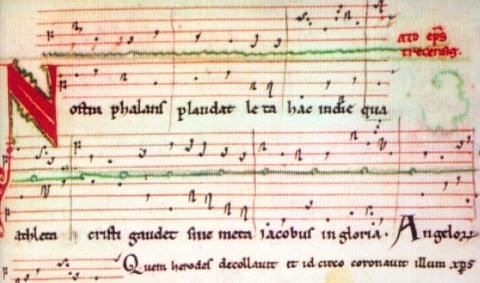 ato ep̄s
trecensis.
Nostra phalans plaudat leta hac in die qua
athleta cristi gaudet sine meta jacobus in gloria. Angelorum
Quem herodes decollauit et id circo coronauit illum xp̄s